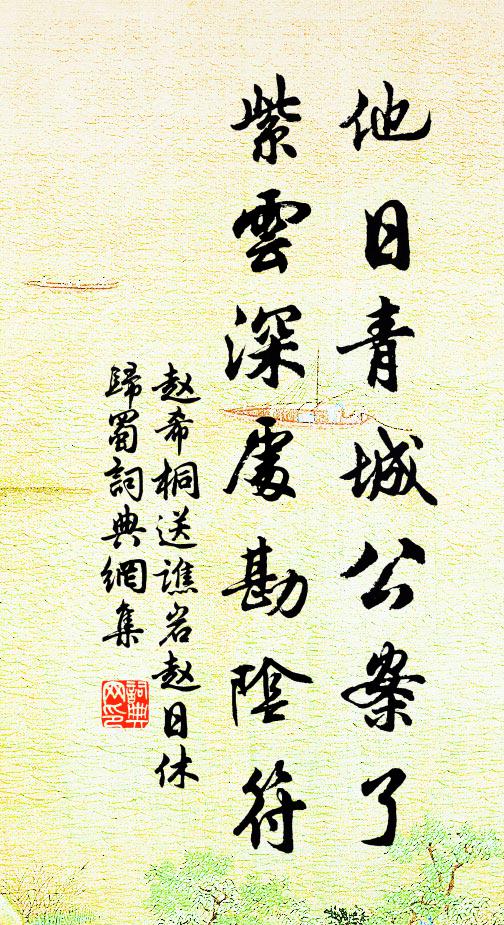 他日青城公案了
紫雲深處勘陰符
赵希桐送譙岩赵日休
歸蜀詞典網集
詞典网印